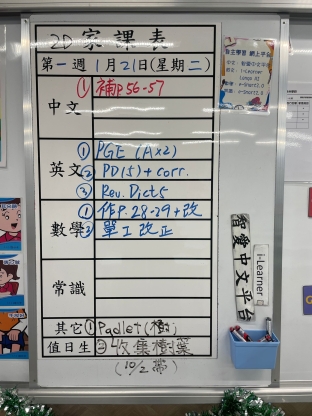 2D 家課表
第一週 1月21日(星期二)
中文
① 補P56-57
英文
① PGE (A×2)
② PD(5) + corr.
③ Rev. Dict5
數學
① 作P.28-29+改
② 單工改正
常識
其它 ① Padlet (樹)
值日生 ② 收集樹葉
(10/2 帶)
自主學習 網上平台
智愛中文平台
i-Learner